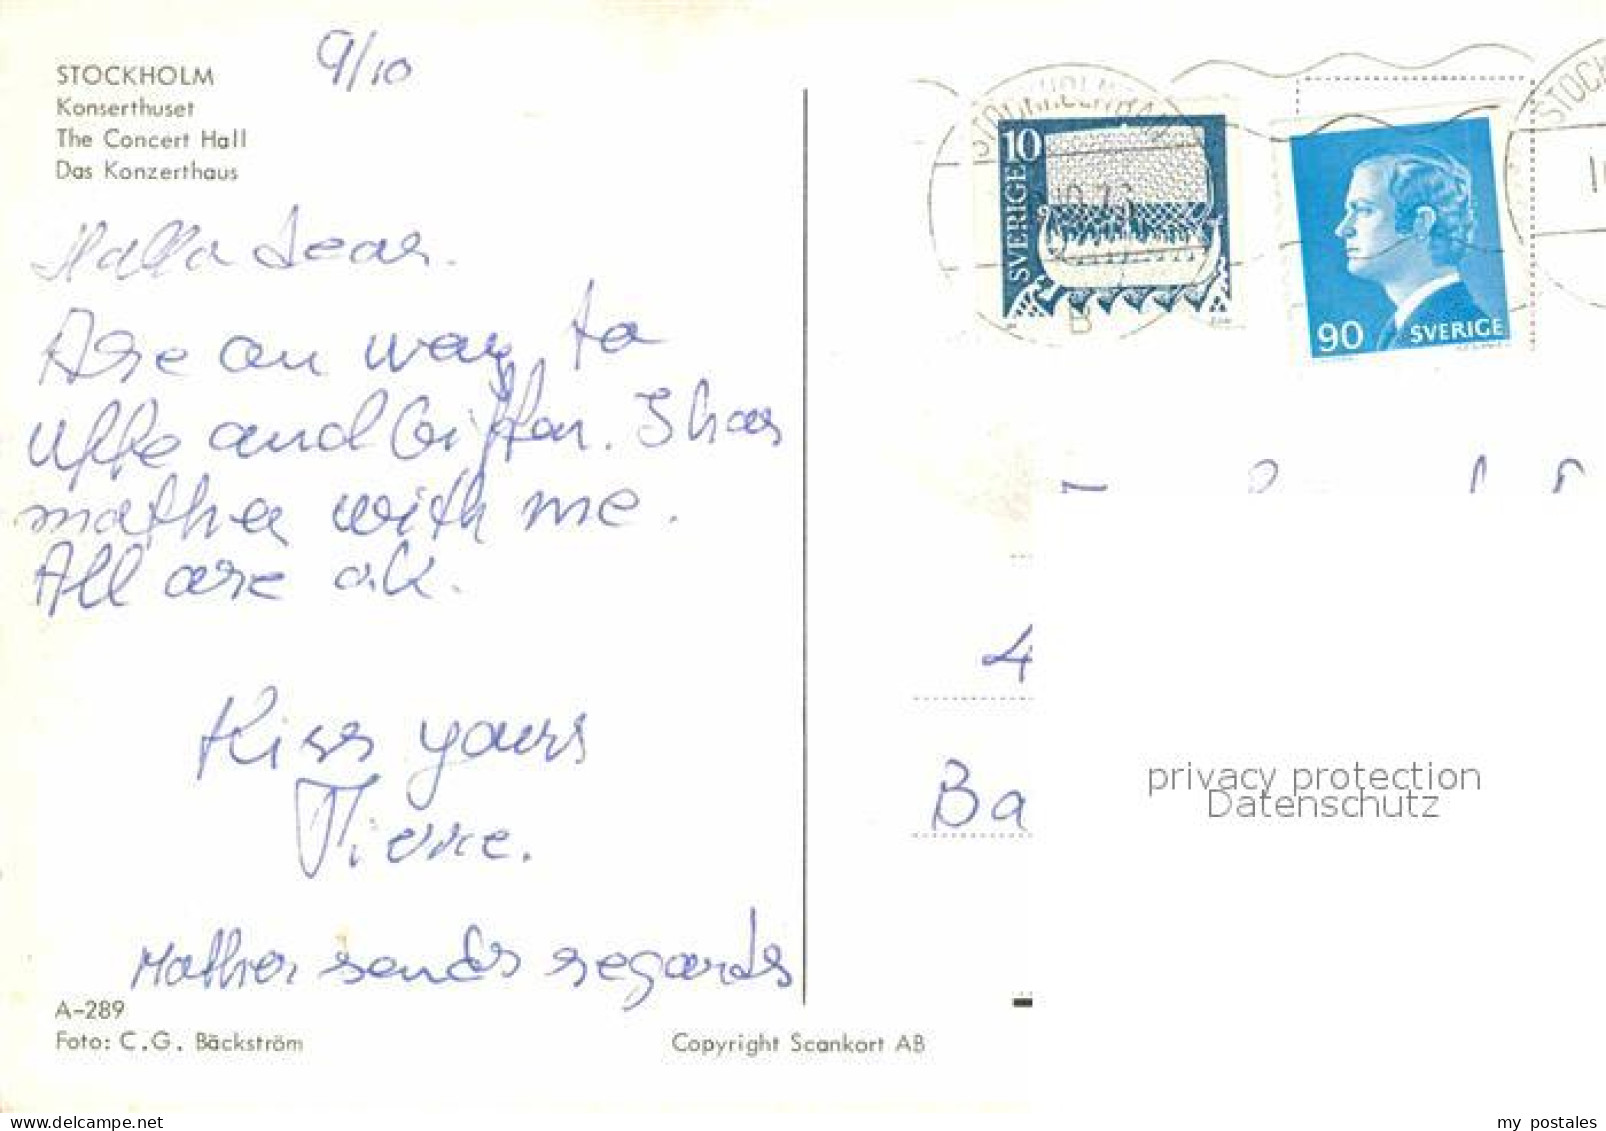 STOCKHOLM
Konserthuset
The Concert Hall
Das Konzerthaus
9/10
Halla dear.
Are on way to
Uffe and Gitten. I has
mother with me.
All are o.k.
Kiss yours
Mother sends regards
A-289
Foto: C.G. Bäckström
Copyright Scankort AB
10
SVERIGE
B
90
SVERIGE
STOCK
4
Ba
privacy protection
Datenschutz
my postales